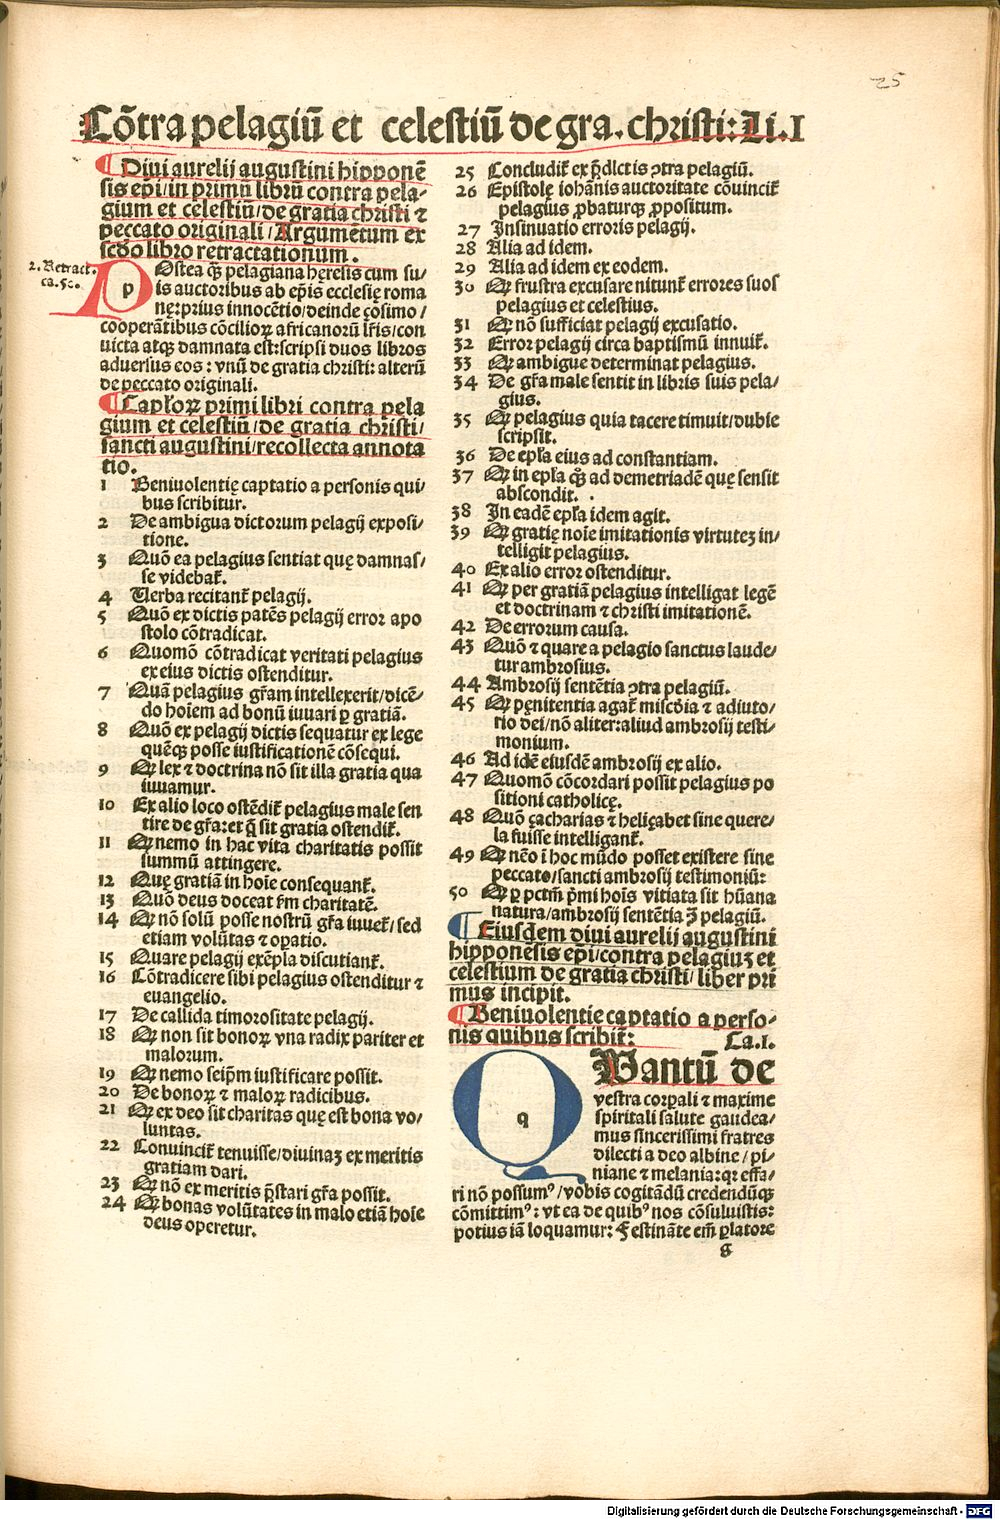 25
Cõtra pelagiũ et celestiũ de gra. christi: Li. I
¶ Diui aurelij augustini hipponẽ
sis ep̃i/in primũ librũ contra pela-
gium et celestiũ/de gratia christi ⁊
peccato originali/Argumẽtum ex
sc̃do libro retractationum.
2. Retract.
ca. 50.
POstea q̃ȝ pelagiana heresis cum su/
is auctoribus ab ep̃is ecclesię roma
nę:prius innocẽtio/deinde çosimo/
cooperãtibus cõcilioꝝ africanorũ lr̃is/con
uicta atqȝ damnata est:scripsi duos libros
aduersus eos: vnũ de gratia christi: alterũ
de peccato originali.
¶ Capl'oꝝ primi libri contra pela
gium et celestiũ/de gratia christi/
sancti augustini/recollecta annota
tio.
1 Beniuolentię captatio a personis qui/
bus scribitur.
2 De ambigua dictorum pelagij exposi/
tione.
3 Quõ ea pelagius sentiat quę damnas/
se videbat̃.
4 Uerba recitant̃ pelagij.
5 Quõ ex dictis patẽs pelagij error apo
stolo cõtradicat.
6 Quomõ cõtradicat veritati pelagius
ex eius dictis ostenditur.
7 Quã pelagius gr̃am intellexerit/dicẽ-
do hoĩem ad bonũ iuuari ꝑ gratiã.
8 Quõ ex pelagij dictis sequatur ex lege
quẽqȝ posse iustificationẽ cõsequi.
9 Qꝛ lex ⁊ doctrina nõ sit illa gratia qua
iuuamur.
10 Ex alio loco ostẽdit̃ pelagius male sen
tire de gr̃a:et q̃ sit gratia ostendit̃.
11 Qꝛ nemo in hac vita charitatis possit
summũ attingere.
12 Quę gratiã in hoĩe consequant̃.
13 Quõ deus doceat f̃m charitatẽ.
14 Qꝛ nõ solũ posse nostrũ gr̃a iuuet̃/sed
etiam volũtas ⁊ oꝑatio.
15 Quare pelagij exẽpla discutiant̃.
16 Cõtradicere sibi pelagius ostenditur ⁊
euangelio.
17 De callida timorositate pelagij.
18 Qꝛ non sit bonoꝝ vna radix pariter et
malorum.
19 Qꝛ nemo seip̃m iustificare possit.
20 De bonoꝝ ⁊ maloꝝ radicibus.
21 Qꝛ ex deo sit charitas quę est bona vo/
luntas.
22 Conuincit̃ tenuisse/diuinaȝ ex meritis
gratiam dari.
23 Qꝛ nõ ex meritis p̃stari gr̃a possit.
24 Qꝛ bonas volũtates in malo etiã hoĩe
deus operetur.
25 Concludit̃ ex p̃dictis ↄtra pelagiũ.
26 Epistolę iohãnis auctoritate cõuincit̃
pelagius ꝓbaturqȝ ꝓpositum.
27 Insinuatio erroris pelagij.
28 Alia ad idem.
29 Alia ad idem ex eodem.
30 Qꝛ frustra excusare nitunt̃ errores suos
pelagius et celestius.
31 Qꝛ nõ sufficiat pelagij excusatio.
32 Error pelagij circa baptismũ innuit̃.
33 Qꝛ ambigue determinat pelagius.
34 De gr̃a male sentit in libris suis pela/
gius.
35 Qꝛ pelagius quia tacere timuit/dubie
scripsit.
36 De ep̃la eius ad constantiam.
37 Qꝛ in ep̃la q̃ȝ ad demetriadẽ quę sensit
abscondit.
38 In eadẽ ep̃la idem agit.
39 Qꝛ gratię noĩe imitationis virtuteȝ in/
telligit pelagius.
40 Ex alio error ostenditur.
41 Qꝛ per gratiã pelagius intelligat legẽ
et doctrinam ⁊ christi imitationẽ.
42 De errorum causa.
43 Quõ ⁊ quare a pelagio sanctus laude/
tur ambrosius.
44 Ambrosij sentẽtia ↄtra pelagiũ.
45 Qꝛ pęnitentia agat̃ mis̃cdia ⁊ adiuto/
rio dei/nõ aliter:aliud ambrosij testi/
monium.
46 Ad idẽ eiusdẽ ambrosij ex alio.
47 Quomõ cõcordari possit pelagius po
sitioni catholicę.
48 Quõ çacharias ⁊ heliçabet sine quere/
la fuisse intelligant̃.
49 Qꝛ nẽo ĩ hoc mũdo posset existere sine
peccato/sancti ambrosij testimoniũ:
50 Qꝛ ꝑ pctm̃ p̃mi hoĩs vitiata sit hũana
natura/ambrosij sentẽtia ↄ̃ pelagiũ.
¶ Eiusdem diui aurelij augustini
hipponẽsis ep̃i/contra pelagiuȝ et
celestium de gratia christi/liber pri
mus incipit.
¶ Beniuolentie captatio a perso-
nis quibus scribit̃: Ca. I.
QUantũ de
vestra corꝑali ⁊ maxime
spiritali salute gaudea/
mus sincerissimi fratres
dilecti a deo albine/pi/
niane ⁊ melania:qꝛ effa/
ri nõ possumꝰ/vobis cogitãdũ credendũqȝ
cõmittimꝰ: vt ea de quibꝰ nos cõsuluistis:
potius iã loquamur: Festinãte em̃ ꝑlatore
g
Digitalisierung gefördert durch die Deutsche Forschungsgemeinschaft - DFG